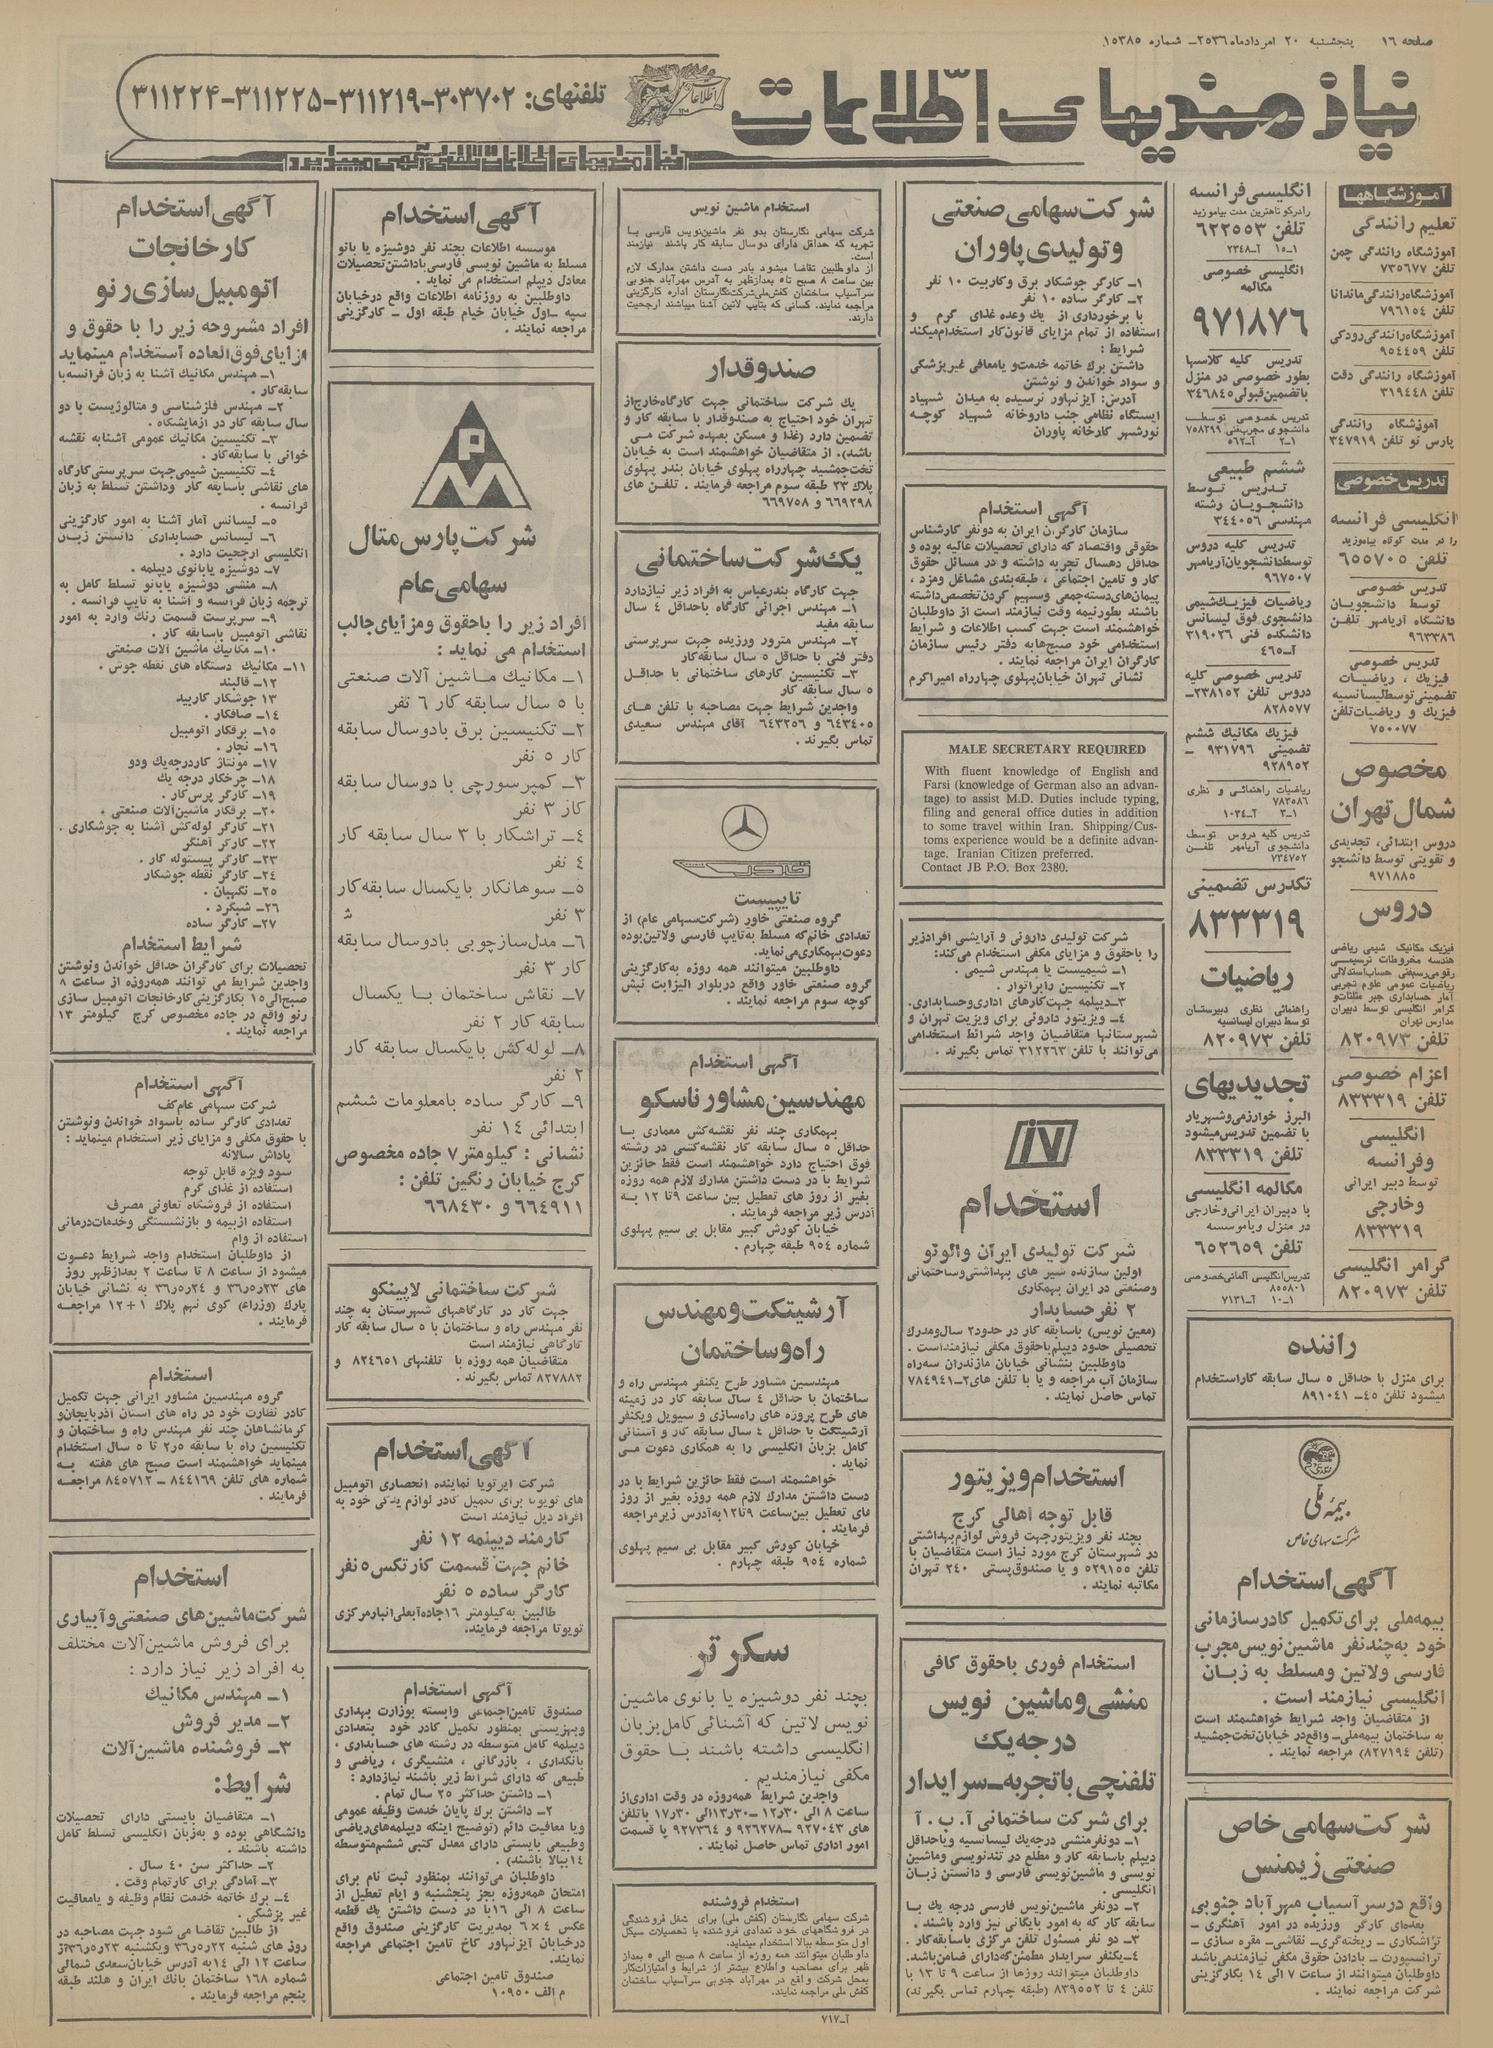 صفحه ۱۶ پنجشنبه ۲۰ امردادماه ۲۵۳۶ـ شماره ۱۵۳۸۵
نیازمندیهای اطلاعات
تلفنهای: ۳۰۳۷۰۲-۳۱۱۲۱۹-۳۱۱۲۲۵-۳۱۱۲۲۴
نیازمندیهای اطلاعات تلفنی آگهی میپذیرد
آموزشگاهها
تعلیم رانندگی
آموزشگاه رانندگی چمن
تلفن ۷۳۵۶۷۷
آموزشگاه رانندگی ماندانا
تلفن ۷۹۶۱۵۴
آموزشگاه رانندگی رودکی
تلفن ۹۵۴۴۵۹
آموزشگاه رانندگی دقت
تلفن ۳۱۹۴۴۸
آموزشگاه رانندگی
پارس نو تلفن ۳۴۷۹۱۹
تدریس خصوصی
انگلیسی فرانسه
را در مدت کوتاه بیاموزید
تلفن ۶۵۵۷۰۵
تدریس خصوصی
توسط دانشجویان
دانشگاه آریامهر تلفن
۹۶۳۳۸۶
تدریس خصوصی
فیزیک ، ریاضیات
تضمینی توسط لیسانسیه
فیزیک و ریاضیات تلفن
۷۵۰۰۷۷
مخصوص
شمال تهران
دروس ابتدائی، تجدیدی
و تقویتی توسط دانشجو
۹۷۱۸۸۵
دروس
فیزیک مکانیک شیمی ریاضی
هندسه مخروطات ترسیمی
رقومی رسم فنی حساب استدلالی
ریاضیات عمومی علوم تجربی
آمار حسابداری جبر مثلثات و
گرامر انگلیسی توسط دبیران
مدارس تهران
تلفن ۸۲۰۹۷۳
اعزام خصوصی
تلفن ۸۳۳۳۱۹
انگلیسی
وفرانسه
توسط دبیر ایرانی
وخارجی
۸۳۳۳۱۹
گرامر انگلیسی
تلفن ۸۲۰۹۷۳
انگلیسی فرانسه
رادرکوتاهترین مدت بیاموزید
تلفن ۶۲۲۵۵۳
۱ـ۱۵ آـ۲۳۴۸
انگلیسی خصوصی
مکالمه
۹۷۱۸۷۶
تدریس کلیه کلاسها
بطور خصوصی در منزل
با تضمین قبولی ۳۴۶۸۴۵
تدریس خصوصی توسط
دانشجوی مجرب فنی ۷۵۸۲۹۹
۱ـ۲ آـ۵۶۲
ششم طبیعی
تدریس توسط
دانشجویان رشته
مهندسی ۳۴۴۰۵۶
تدریس کلیه دروس
توسط دانشجویان آریامهر
۹۶۷۵۰۷
ریاضیات فیزیک شیمی
دانشجوی فوق لیسانس
دانشکده فنی ۳۱۹۰۲۶
آـ۴۶۵
تدریس خصوصی کلیه
دروس تلفن ۲۳۸۱۵۲ـ
۸۲۸۵۷۷
فیزیک مکانیک ششم
تضمینی ۹۳۱۷۹۶ ـ
۹۲۸۹۵۲
ریاضیات راهنمائی و نظری
۷۸۲۵۸۶
۱ـ۳ آـ۱۰۲۴
تدریس کلیه دروس توسط
دانشجوی آریامهر تلفن
۷۳۴۷۵۲
تکدرس تضمینی
۸۳۳۳۱۹
ریاضیات
راهنمائی نظری دبیرستان
توسط دبیران لیسانسیه
تلفن ۸۲۰۹۷۳
تجدیدیهای
البرز خوارزمی وشهریار
با تضمین تدریس میشود
تلفن ۸۳۳۳۱۹
مکالمه انگلیسی
با دبیران ایرانی وخارجی
در منزل ویا موسسه
تلفن ۶۵۲۶۵۹
تدریس انگلیسی آلمانی خصوصی
۸۵۵۸۰۱
۱ـ۱۰ آـ۷۱۳۱
راننده
برای منزل با حداقل ۵ سال سابقه کار استخدام
میشود تلفن ۴۵ـ ۸۹۱۰۴۱
بیمه ملی
شرکت سهامی خاص
آگهی استخدام
بیمه ملی برای تکمیل کادر سازمانی
خود به چند نفر ماشین نویس مجرب
فارسی ولاتین ومسلط به زبان
انگلیسی نیازمند است .
از متقاضیان واجد شرایط خواهشمند است
به ساختمان بیمه ملی ـ واقع در خیابان تخت جمشید
(تلفن ۸۲۷۱۹۴) مراجعه نمایند .
شرکت سهامی خاص
صنعتی زیمنس
واقع در سر آسیاب مهرآباد جنوبی
بعده‌ای کارگر ورزیده در امور آهنگری ـ
تراشکاری ـ ریخته‌گری ـ نقاشی ـ مقره سازی ـ
ترانسپورت ـ بادادن حقوق مکفی نیازمند می‌باشد
داوطلبان میتوانند از ساعت ۷ الی ۱۴ بکارگزینی
شرکت مراجعه نمایند .
شرکت سهامی صنعتی
وتولیدی پاوران
۱ـ کارگر جوشکار برق وکاربیت ۱۰ نفر
۲ـ کارگر ساده ۱۰ نفر
با برخورداری از یک وعده غذای گرم و
استفاده از تمام مزایای قانون کار استخدام میکند
شرایط :
داشتن برک خاتمه خدمت و یا معافی غیر پزشکی
و سواد خواندن و نوشتن
آدرس: آیزنهاور نرسیده به میدان شهیاد
ایستگاه نظامی جنب داروخانه شهیاد کوچه
نورشهر کارخانه پاوران
آگهی استخدام
سازمان کارگران ایران به دو نفر کارشناس
حقوقی و اقتصاد که دارای تحصیلات عالیه بوده و
حداقل دهسال تجربه داشته و در مسائل حقوق
کار و تامین اجتماعی ، طبقه‌بندی مشاغل ومزد ،
پیمان‌های دسته‌جمعی وسهیم کردن تخصص داشته
باشند بطور نیمه وقت نیازمند است از داوطلبان
خواهشمند است جهت کسب اطلاعات و شرایط
استخدامی خود صبح‌ها به دفتر رئیس سازمان
کارگران ایران مراجعه نمایند .
نشانی تهران خیابان پهلوی چهارراه امیراکرم
MALE SECRETARY REQUIRED
With fluent knowledge of English and
Farsi (knowledge of German also an advan-
tage) to assist M.D. Duties include typing,
filing and general office duties in addition
to some travel within Iran. Shipping/Cus-
toms experience would be a definite advan-
tage. Iranian Citizen preferred.
Contact JB P.O. Box 2380.
شرکت تولیدی داروئی و آرایشی افراد زیر
را باحقوق و مزایای مکفی استخدام می‌کند:
۱ـ شیمیست یا مهندس شیمی .
۲ـ تکنیسین راپراتوار .
۳ـ دیپلمه جهت کارهای اداری وحسابداری.
۴ـ ویزیتور داروئی برای ویزیت تهران و
شهرستانها متقاضیان واجد شرائط استخدامی
می‌توانند با تلفن ۳۱۲۲۶۳ تماس بگیرند .
iv
استخدام
شرکت تولیدی ایران والوئو
اولین سازنده شیر های بهداشتی وساختمانی
وصنعتی در ایران بهمکاری
۲ نفر حسابدار
(معین نویس) باسابقه کار در حدود ۲ سال ومدرک
تحصیلی حدود دیپلم باحقوق مکفی نیازمند است .
داوطلبین بنشانی خیابان مازندران سه‌راه
سازمان آب مراجعه و یا با تلفن های ۲ـ۷۸۴۹۴۱
تماس حاصل نمایند .
استخدام ویزیتور
قابل توجه اهالی کرج
بچند نفر ویزیتور جهت فروش لوازم بهداشتی
در شهرستان کرج مورد نیاز است متقاضیان با
تلفن ۵۲۹۱۵۵ و یا صندوق پستی ۲۴۰ تهران
مکاتبه نمایند .
استخدام فوری باحقوق کافی
منشی وماشین نویس
درجه یک
تلفنچی باتجربه ـ سرایدار
برای شرکت ساختمانی آ . ب . آ
۱ـ دو نفر منشی درجه یک لیسانسیه ویا حداقل
دیپلم باسابقه کار و مطلع در تند نویسی وماشین
نویسی و ماشین نویسی فارسی و دانستن زبان
انگلیسی .
۲ـ دو نفر ماشین نویس فارسی درجه یک با
سابقه کار که به امور بایگانی نیز وارد باشند .
۳ـ دو نفر مسئول تلفن مرکزی باسابقه کار.
۴ـ یکنفر سرایدار مطمئن که دارای ضامن باشد.
داوطلبان میتوانند روزها از ساعت ۹ تا ۱۳ با
تلفن ۴ تا ۸۳۹۵۵۲ (طبقه چهارم تماس بگیرند)
استخدام ماشین نویس
شرکت سهامی نگارستان بدو نفر ماشین نویس فارسی با
تجربه که حداقل دارای دو سال سابقه کار باشند نیازمند
است.
از داوطلبین تقاضا میشود با در دست داشتن مدارک لازم
بین ساعت ۸ صبح تا ۵ بعدازظهر به آدرس مهرآباد جنوبی
سرآسیاب ساختمان کفش ملی شرکت نگارستان اداره کارگزینی
مراجعه نمایند. کسانی که بتایپ لاتین آشنا میباشند ارجحیت
دارند.
صندوقدار
یک شرکت ساختمانی جهت کارگاه خارج از
تهران خود احتیاج به صندوقدار با سابقه کار و
تضمین دارد (غذا و مسکن بعهده شرکت می
باشد)، از متقاضیان خواهشمند است به خیابان
تخت جمشید چهارراه پهلوی خیابان بندر پهلوی
پلاک ۲۳ طبقه سوم مراجعه فرمایند . تلفن های
۶۶۹۲۹۸ و ۶۶۹۷۵۸
یک شرکت ساختمانی
جهت کارگاه بندرعباس به افراد زیر نیازدارد
۱ـ مهندس اجرائی کارگاه باحداقل ۴ سال
سابقه مفید
۲ـ مهندس مترور ورزیده جهت سرپرستی
دفتر فنی با حداقل ۵ سال سابقه کار
۳ـ تکنیسین کارهای ساختمانی با حداقل
۵ سال سابقه کار
واجدین شرایط جهت مصاحبه با تلفن های
۶۴۳۴۰۵ و ۶۴۳۲۵۶ آقای مهندس سعیدی
تماس بگیرند .
خاور
تایپیست
گروه صنعتی خاور (شرکت سهامی عام) از
تعدادی خانم که مسلط به تایپ فارسی ولاتین بوده
دعوت بهمکاری می‌نماید.
داوطلبین میتوانند همه روزه به کارگزینی
گروه صنعتی خاور واقع در بلوار الیزابت نبش
کوچه سوم مراجعه نمایند .
آگهی استخدام
مهندسین مشاور ناسکو
بهمکاری چند نفر نقشه‌کش معماری با
حداقل ۵ سال سابقه کار نقشه کشی در رشته
فوق احتیاج دارد خواهشمند است فقط حائزین
شرایط با در دست داشتن مدارک لازم همه روزه
بغیر از روز های تعطیل بین ساعت ۹ تا ۱۲ به
آدرس زیر مراجعه فرمایند .
خیابان کورش کبیر مقابل بی سیم پهلوی
شماره ۹۵۴ طبقه چهارم .
آرشیتکت ومهندس
راه وساختمان
مهندسین مشاور طرح یکنفر مهندس راه و
ساختمان با حداقل ۴ سال سابقه کار در زمینه
های طرح پروژه های راه‌سازی و سیویل ویکنفر
آرشیتکت با حداقل ۴ سال سابقه کار و آشنائی
کامل بزبان انگلیسی را به همکاری دعوت می
نماید .
خواهشمند است فقط حائزین شرایط با در
دست داشتن مدارک لازم همه روزه بغیر از روز
های تعطیل بین ساعت ۹ تا ۱۲ به آدرس زیر مراجعه
فرمایند .
خیابان کورش کبیر مقابل بی سیم پهلوی
شماره ۹۵۴ طبقه چهارم .
سکرتر
بچند نفر دوشیزه یا بانوی ماشین
نویس لاتین که آشنائی کامل بزبان
انگلیسی داشته باشند با حقوق
مکفی نیازمندیم .
واجدین شرایط همه‌روزه در وقت اداری از
ساعت ۸ الی ۱۲٫۳۰ ـ ۱۳٫۳۰ الی ۱۷٫۳۰ با تلفن
های ۹۲۷۰۴۳ ـ ۹۲۶۲۷۸ و ۹۲۷۳۶۴ با قسمت
امور اداری تماس حاصل نمایند .
استخدام فروشنده
شرکت سهامی نگارستان (کفش ملی) برای شغل فروشندگی
در فروشگاههای خود تعدادی فروشنده با تحصیلات سیکل
اول متوسطه ببالا استخدام مینماید.
داوطلبان میتوانند همه روزه از ساعت ۸ صبح الی ۵ بعداز
ظهر برای مصاحبه و اطلاع بیشتر از شرایط و امتیازات کار
بمحل شرکت واقع در مهرآباد جنوبی سرآسیاب ساختمان
کفش ملی مراجعه نمایند.
آـ۷۱۷
آگهی استخدام
موسسه اطلاعات بچند نفر دوشیزه یا بانو
مسلط به ماشین نویسی فارسی باداشتن تحصیلات
معادل دیپلم استخدام می نماید .
داوطلبین به روزنامه اطلاعات واقع در خیابان
سپه ـ اول خیابان خیام طبقه اول ـ کارگزینی
مراجعه نمایند .
PM
شرکت پارس متال
سهامی عام
افراد زیر را با حقوق ومزایای جالب
استخدام می نماید :
۱ـ مکانیک ماشین آلات صنعتی
با ۵ سال سابقه کار ۶ نفر
۲ـ تکنیسین برق بادوسال سابقه
کار ۵ نفر
۳ـ کمپرسورچی با دوسال سابقه
کار ۳ نفر
۴ـ تراشکار با ۳ سال سابقه کار
۴ نفر
۵ـ سوهانکار بایکسال سابقه کار
۳ نفر
۶ـ مدل ساز چوبی بادوسال سابقه
کار ۳ نفر
۷ـ نقاش ساختمان با یکسال
سابقه کار ۲ نفر
۸ـ لوله کش بایکسال سابقه کار
۲ نفر
۹ـ کارگر ساده بامعلومات ششم
ابتدائی ۱۴ نفر
نشانی : کیلومتر ۷ جاده مخصوص
کرج خیابان رنگین تلفن :
۶۶۴۹۱۱ و ۶۶۸۴۳۰
شرکت ساختمانی لاپینکو
جهت کار در کارگاههای شهرستان به چند
نفر مهندس راه و ساختمان با ۵ سال سابقه کار
کارگاهی نیازمند است
متقاضیان همه روزه با تلفنهای ۸۲۴۶۵۱ و
۸۲۷۸۸۲ تماس بگیرند .
آگهی استخدام
شرکت ایرتویا نماینده انحصاری اتومبیل
های تویوتا برای تکمیل کادر لوازم یدکی خود به
افراد ذیل نیازمند است
کارمند دیپلمه ۱۲ نفر
خانم جهت قسمت کارتکس ۵ نفر
کارگر ساده ۵ نفر
طالبین به کیلومتر ۱۶ جاده آبعلی انبار مرکزی
تویوتا مراجعه فرمایند.
آگهی استخدام
صندوق تامین اجتماعی وابسته بوزارت بهداری
وبهزیستی بمنظور تکمیل کادر خود بتعدادی
دیپلمه کامل متوسطه در رشته های حسابداری ،
بانکداری ، بازرگانی ، منشیگری ، ریاضی و
طبیعی که دارای شرائط زیر باشند نیازدارد :
۱ـ داشتن حداکثر ۲۵ سال تمام .
۲ـ داشتن برک پایان خدمت وظیفه عمومی
ویا معافیت دائم (توضیح اینکه دیپلمه‌های ریاضی
وطبیعی بایستی دارای معدل کتبی ششم متوسطه
۱۴ ببالا باشند) .
داوطلبان می‌توانند بمنظور ثبت نام برای
امتحان همه‌روزه بجز پنجشنبه و ایام تعطیل از
ساعت ۸ الی ۱۶ با در دست داشتن یک قطعه
عکس ۴×۶ بمدیریت کارگزینی صندوق واقع
در خیابان آیزنهاور کاخ تامین اجتماعی مراجعه
نمایند.
صندوق تامین اجتماعی
م الف ۱۰۹۵۰
آگهی استخدام
کارخانجات
اتومبیل سازی رنو
افراد مشروحه زیر را با حقوق و
مزایای فوق العاده استخدام مینماید
۱ـ مهندس مکانیک آشنا به زبان فرانسه با
سابقه کار .
۲ـ مهندس فلزشناسی و متالوژیست با دو
سال سابقه کار در آزمایشگاه .
۳ـ تکنیسین مکانیک عمومی آشنا به نقشه
خوانی با سابقه کار .
۴ـ تکنیسین شیمی جهت سرپرستی کارگاه
های نقاشی باسابقه کار وداشتن تسلط به زبان
فرانسه .
۵ـ لیسانس آمار آشنا به امور کارگزینی
۶ـ لیسانس حسابداری دانستن زبان
انگلیسی ارجحیت دارد .
۷ـ دوشیزه یا بانوی دیپلمه .
۸ـ منشی دوشیزه یا بانو تسلط کامل به
ترجمه زبان فرانسه و آشنا به تایپ فرانسه .
۹ـ سرپرست قسمت رنگ وارد به امور
نقاشی اتومبیل باسابقه کار .
۱۰ـ مکانیک ماشین آلات صنعتی
۱۱ـ مکانیک دستگاه های نقطه جوش .
۱۲ـ قالبند
۱۳ جوشکار کاربید
۱۴ـ صافکار .
۱۵ـ برقکار اتومبیل
۱۶ـ نجار .
۱۷ـ مونتاژ کار درجه یک ودو
۱۸ـ چرخکار درجه یک
۱۹ـ کارگر پرس کار .
۲۰ـ برقکار ماشین آلات صنعتی .
۲۱ـ کارگر لوله کش آشنا به جوشکاری .
۲۲ـ کارگر آهنگر
۲۳ـ کارگر پیستوله کار .
۲۴ـ کارگر نقطه جوشکار
۲۵ـ نگهبان .
۲۶ـ شبگرد .
۲۷ـ کارگر ساده
شرایط استخدام
تحصیلات برای کارگران حداقل خواندن ونوشتن
واجدین شرایط می توانند همه روزه از ساعت ۸
صبح الی ۱۵ بکارگزینی کارخانجات اتومبیل سازی
رنو واقع در جاده مخصوص کرج کیلومتر ۱۳
مراجعه نمایند .
آگهی استخدام
شرکت سهامی عام کف
تعدادی کارگر ساده باسواد خواندن ونوشتن
با حقوق مکفی و مزایای زیر استخدام مینماید :
پاداش سالانه
سود ویژه قابل توجه
استفاده از غذای گرم
استفاده از فروشگاه تعاونی مصرف
استفاده از بیمه و بازنشستگی وخدمات درمانی
استفاده از وام
از داوطلبان استخدام واجد شرایط دعوت
میشود از ساعت ۸ تا ساعت ۲ بعدازظهر روز
های ۳۶٫۵٫۲۳ و ۳۶٫۵٫۲۴ به نشانی خیابان
پارک (وزراء) کوی نهم پلاک ۱+۱۲ مراجعه
فرمایند .
استخدام
گروه مهندسین مشاور ایرانی جهت تکمیل
کادر نظارت خود در راه های استان آذربایجان و
کرمانشاهان چند نفر مهندس راه و ساختمان و
تکنیسین راه با سابقه ۲٫۵ تا ۵ سال استخدام
مینماید خواهشمند است صبح های هفته به
شماره های تلفن ۸۴۴۱۶۹ ـ ۸۴۵۷۱۲ مراجعه
فرمایند .
استخدام
شرکت ماشین‌های صنعتی وآبیاری
برای فروش ماشین‌آلات مختلف
به افراد زیر نیاز دارد :
۱ـ مهندس مکانیک
۲ـ مدیر فروش
۳ـ فروشنده ماشین‌آلات
شرایط:
۱ـ متقاضیان بایستی دارای تحصیلات
دانشگاهی بوده و به‌زبان انگلیسی تسلط کامل
داشته باشند .
۲ـ حداکثر سن ۴۰ سال .
۳ـ آمادگی برای کار تمام وقت .
۴ـ برک خاتمه خدمت نظام وظیفه و یا معافیت
غیر پزشکی .
از طالبین تقاضا می شود جهت مصاحبه در
روز های شنبه ۳۶٫۵٫۲۲ ویکشنبه ۳۶٫۵٫۲۳ از
ساعت ۱۲ الی ۱۴ به آدرس خیابان سعدی شمالی
شماره ۱۶۸ ساختمان بانک ایران و هلند طبقه
پنجم مراجعه فرمایند .